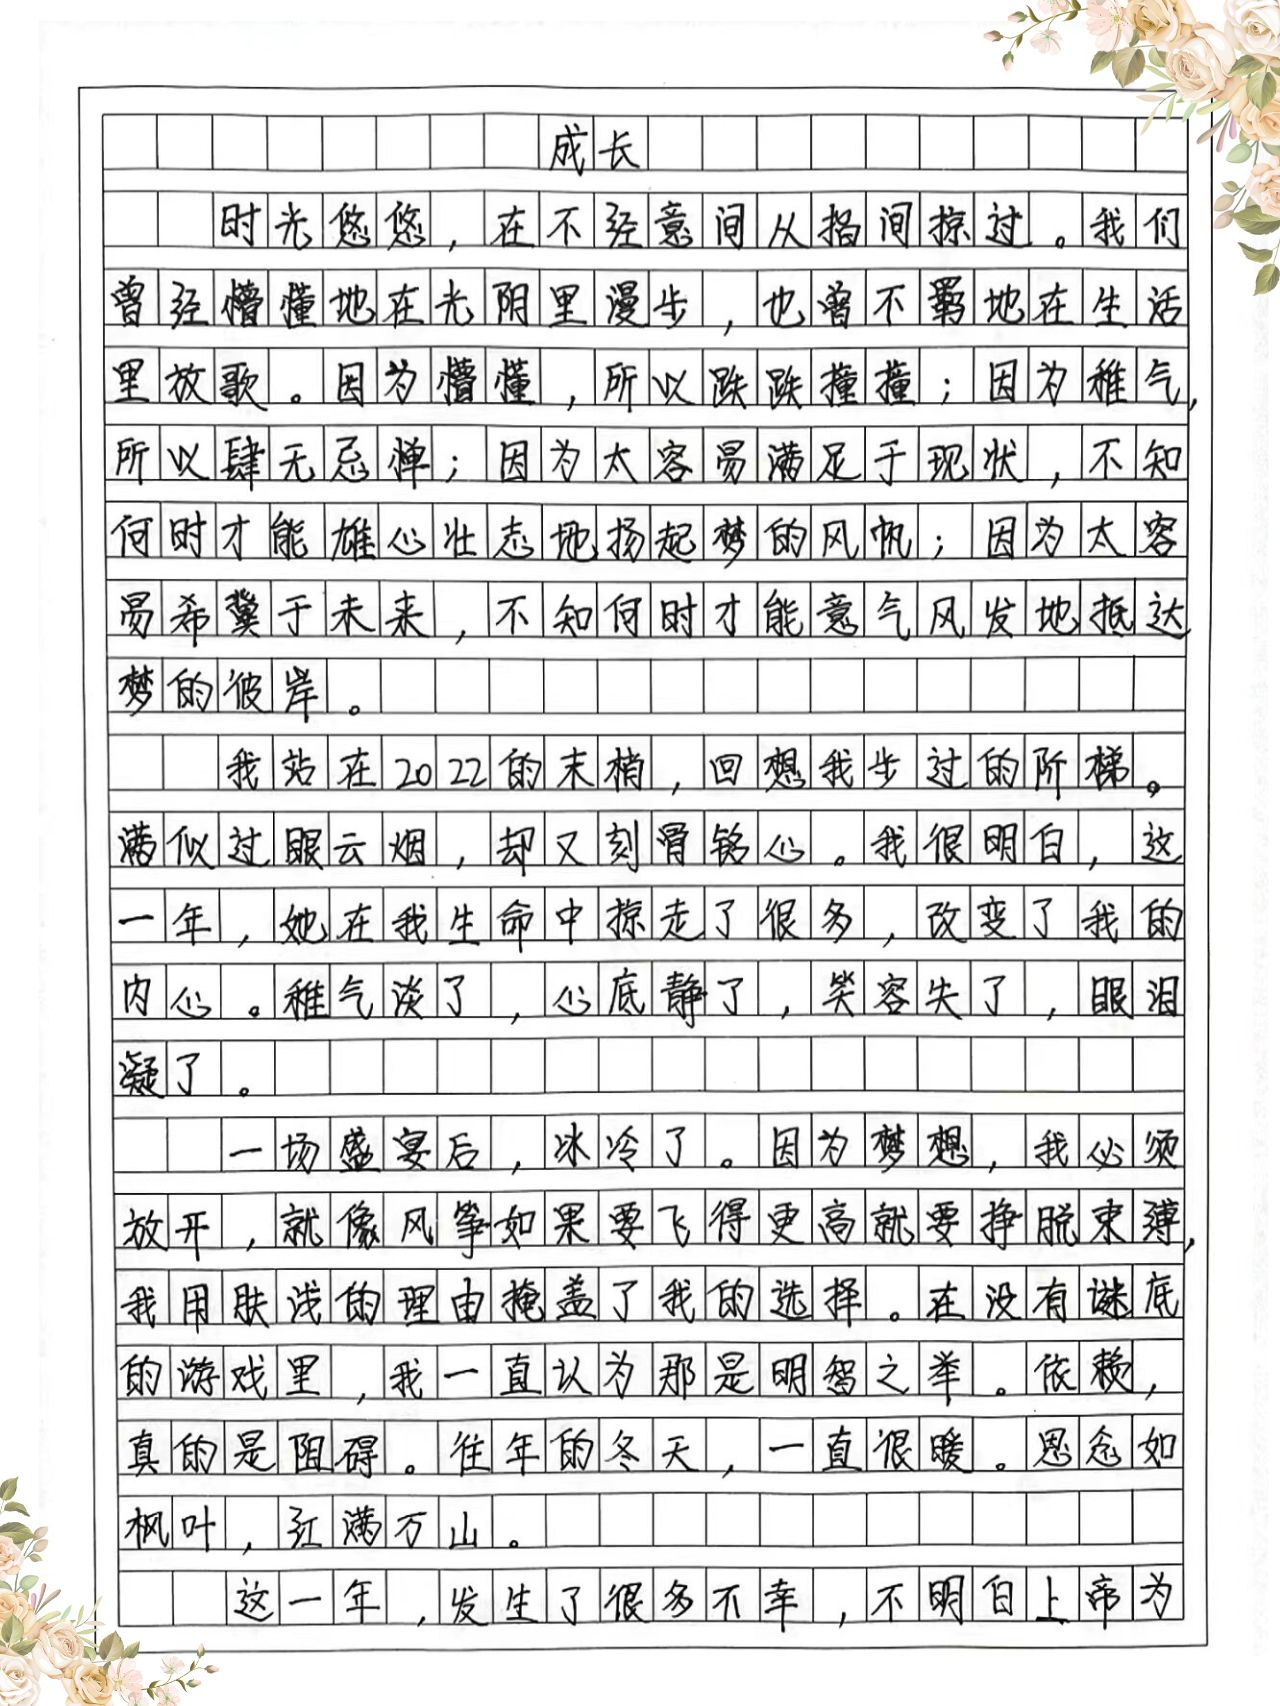 成长
时光悠悠，在不经意间从指间掠过。我们
曾经懵懂地在光阴里漫步，也曾不羁地在生活
里放歌。因为懵懂，所以跌跌撞撞；因为稚气，
所以肆无忌惮；因为太容易满足于现状，不知
何时才能雄心壮志地扬起梦的风帆；因为太容
易希冀于未来，不知何时才能意气风发地抵达
梦的彼岸。
我站在2022的末梢，回想我步过的阶梯。
满似过眼云烟，却又刻骨铭心。我很明白，这
一年，她在我生命中掠走了很多，改变了我的
内心。稚气淡了，心底静了，笑容失了，眼泪
凝了。
一场盛宴后，冰冷了。因为梦想，我必须
放开，就像风筝如果要飞得更高就要挣脱束薄，
我用肤浅的理由掩盖了我的选择。在没有谜底
的游戏里，我一直认为那是明智之举。依赖，
真的是阻碍。往年的冬天，一直很暖。思念如
枫叶，红满万山。
这一年，发生了很多不幸，不明白上帝为